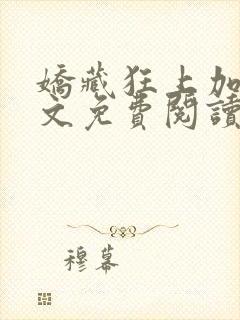 嬌藏狂上加
文免費閱讀
穆幕